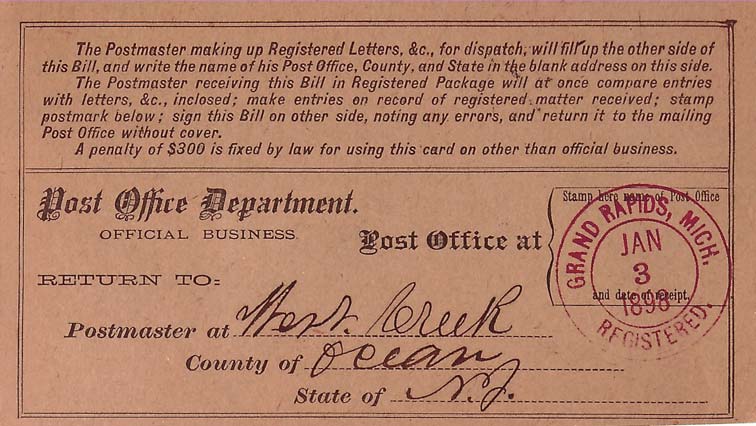 The Postmaster making up Registered Letters, &c., for dispatch, will fill up the other side of
this Bill, and write the name of his Post Office, County, and State in the blank address on this side.
The Postmaster receiving this Bill in Registered Package will at once compare entries
with letters, &c., inclosed; make entries on record of registered matter received; stamp
postmark below; sign this Bill on other side, noting any errors, and return it to the mailing
Post Office without cover.
A penalty of $300 is fixed by law for using this card on other than official business.
Post Office Department.
OFFICIAL BUSINESS.
Post Office at
Stamp here name of Post Office
and date of receipt.
GRAND RAPIDS, MICH.
JAN
3
1898
REGISTERED.
RETURN TO:
Postmaster at West Creek
County of Ocean
State of N.J.